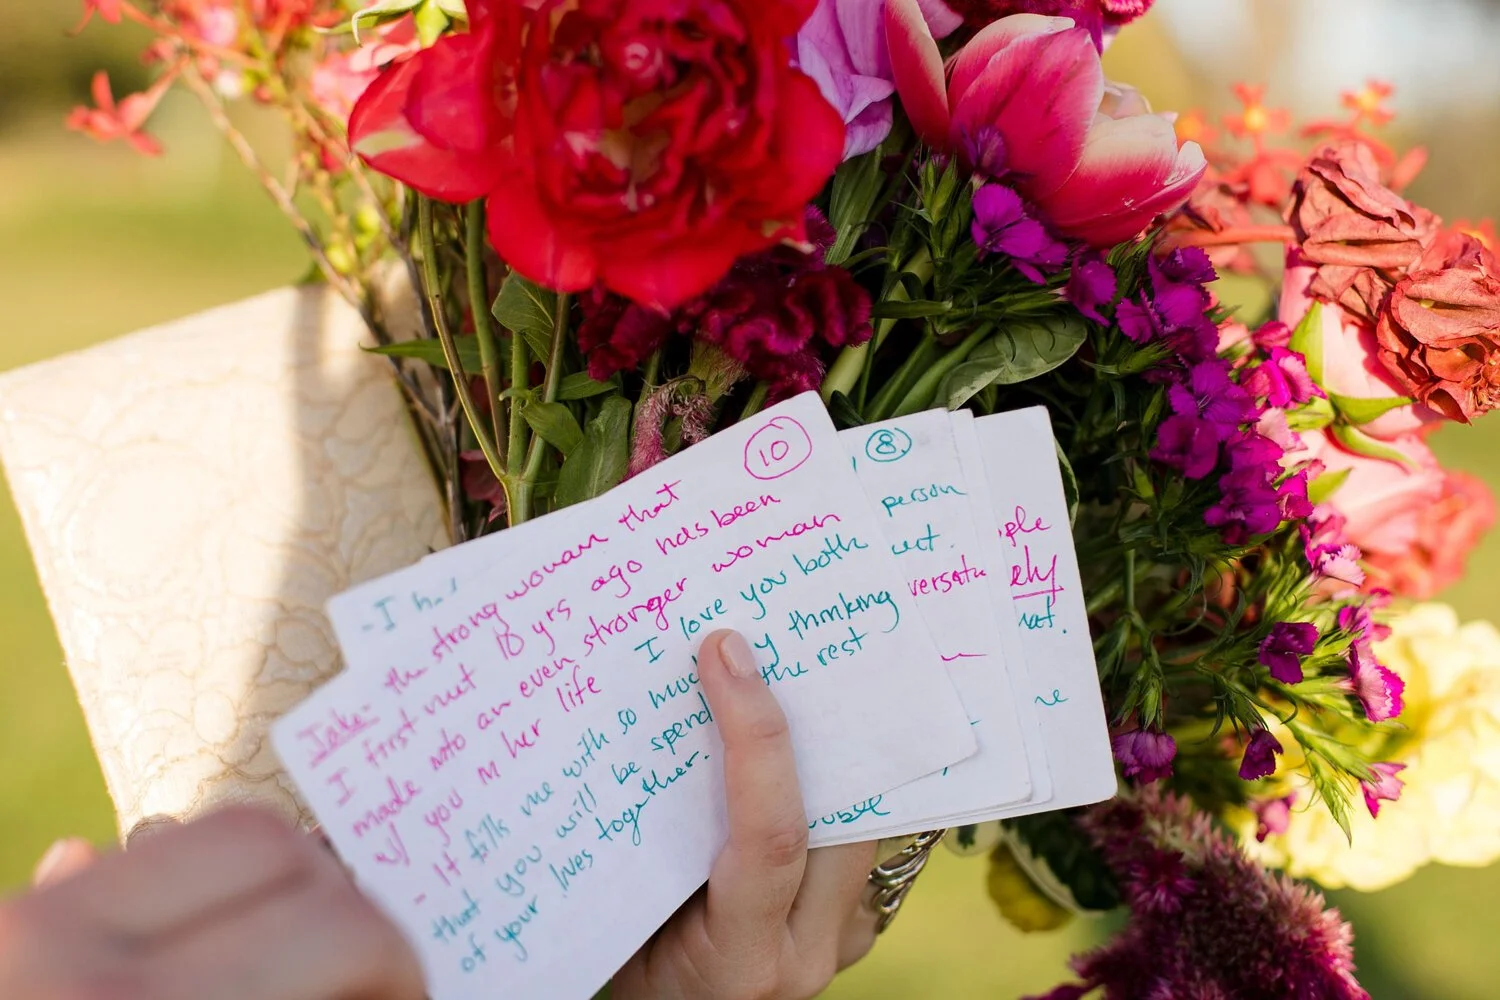 10
- I
Jake: the strong woman that
I first met 10 yrs ago has been
made into an even stronger woman
w/ you in her life
I love you both
- It fills me with so much thinking
that you will be spend the rest
of your lives together.
8
person
versatu
ple
ely